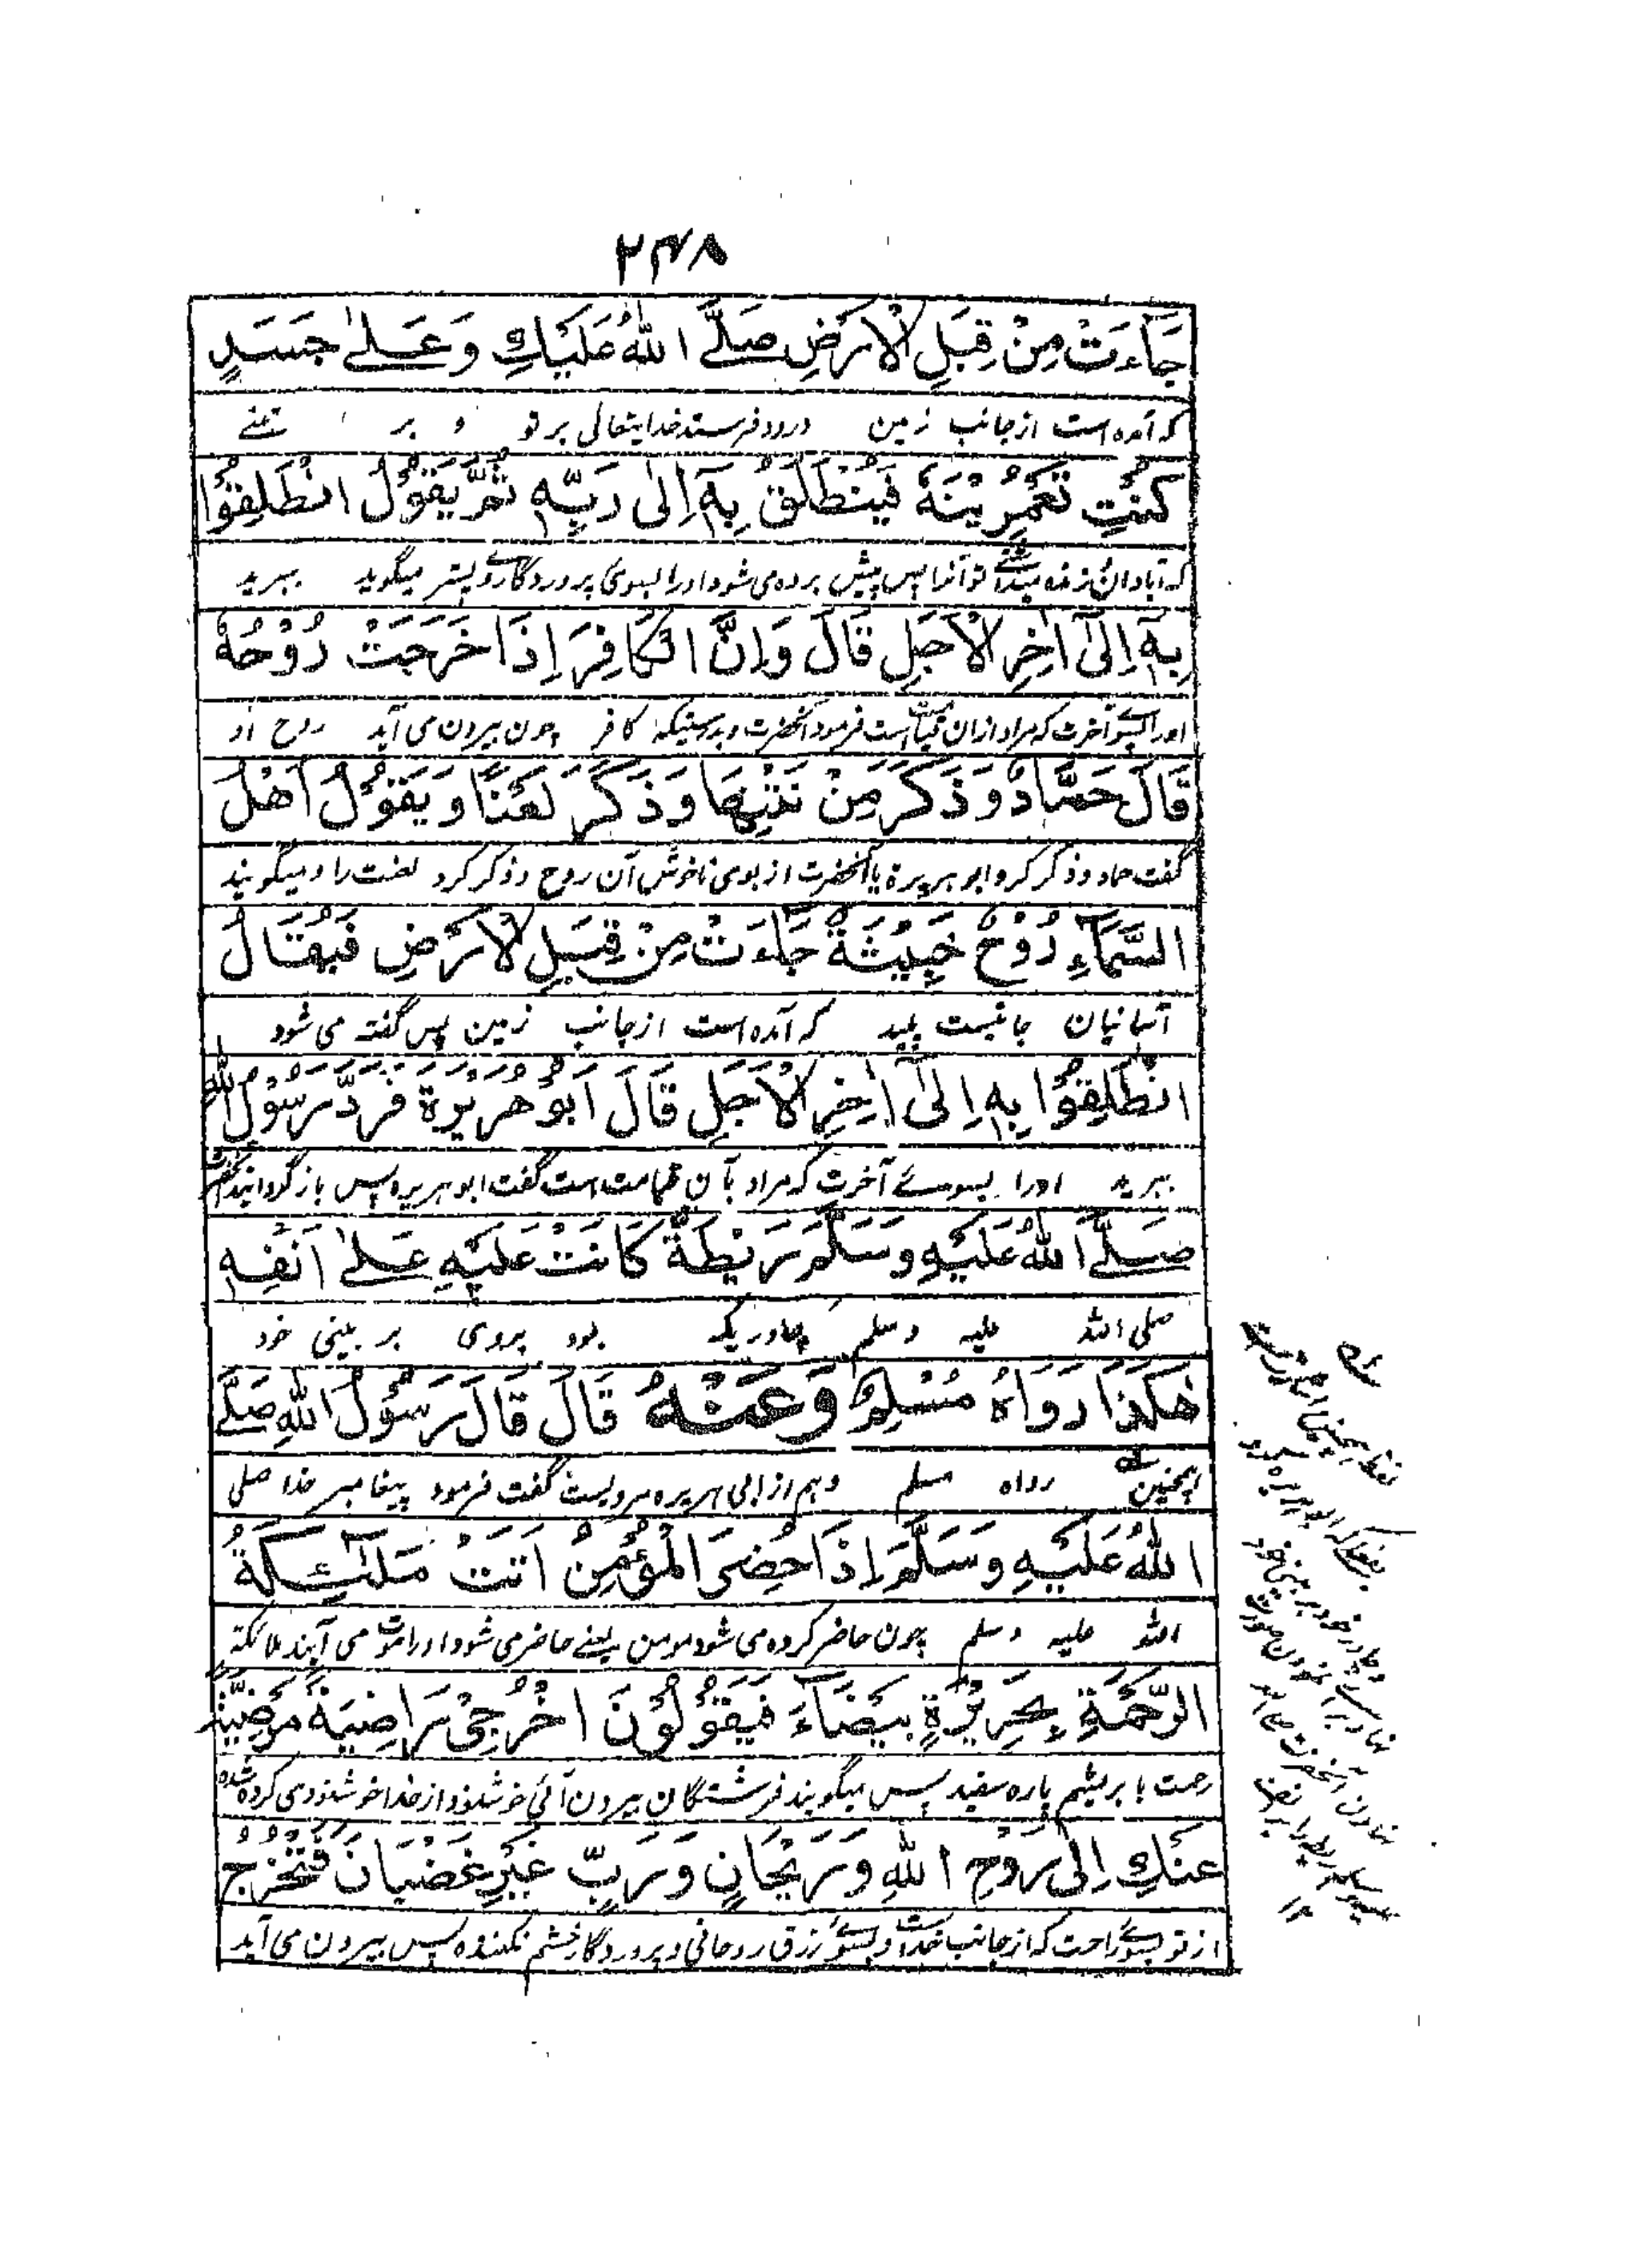 ۲۴۸
جَاءَتْ مِنْ قِبَلِ الْاَرْضِ صَلَّے اللّٰهُ عَلَيْكِ وَعَلٰے جَسَدٍ
که آمده است از جانب زمین درود فرستد خدایتعالی بر تو و بر تنے
كُنْتِ تَعْمُرِيْنَهٗ فَيُنْطَلَقُ بِهٖٓ اِلٰى رَبِّهٖ ثُمَّ يَقُوْلُ انْطَلِقُوْا
که آبادان و زنده تو آنرا پس پیش برده می شود او را بسوی پروردگار وے پستر میگوید ببرید
بِهٖٓ اِلٰٓى اٰخِرِ الْاَجَلِ قَالَ وَاِنَّ الْكَافِرَ اِذَا خَرَجَتْ رُوْحُهٗ
اورا بسوے آخرت که مراد ازان قیامت است فرمود آنحضرت و بدرستیکه کافر چون بیرون می آید روح او
قَالَ حَمَّادٌ وَذَكَرَ مِنْ نَتْنِهَا وَذَكَرَ لَعْنًا وَيَقُوْلُ اَهْلُ
گفت حماد و ذکر کرد ابو هریره یا آنحضرت از بوی ناخوش آن روح و ذکر کرد لعنت را و میگویند
السَّمَآءِ رُوْحٌ خَبِيْثَةٌ جَاءَتْ مِنْ قِبَلِ الْاَرْضِ فَيُقَالُ
آسمانیان جانیست پلید که آمده است از جانب زمین پس گفته می شود
انْطَلِقُوْا بِهٖ اِلٰٓى اٰخِرِ الْاَجَلِ قَالَ اَبُوْ هُرَيْرَةَ فَرَدَّ رَسُوْلُ اللّٰهِ
ببرید اورا بسوے آخرت که مراد بآن قیامت است گفت ابو هریره پس باز گردانید آنحضرت
صَلَّے اللّٰهُ عَلَيْهِ وَسَلَّمَ رَيْطَةً كَانَتْ عَلَيْهِ عَلٰے اَنْفِهٖ
صلی الله علیه وسلم چادریکه بود بروی بر بینی خود
هٰكَذَا رَوَاهُ مُسْلِمٌ وَعَنْهُ قَالَ قَالَ رَسُوْلُ اللّٰهِ صَلَّے
اینچنین رواه مسلم و هم از ابی هریره مرویست گفت فرمود پیغامبر خدا صلی
اللّٰهُ عَلَيْهِ وَسَلَّمَ اِذَا حُضِرَ الْمُؤْمِنُ اَتَتْ مَلٰٓئِكَةُ
الله علیه وسلم چون حاضر کرده می شود مومن یعنے حاضر می شود او را موت می آیند ملائکۀ
الرَّحْمَةِ بِحَرِيْرَةٍ بَيْضَآءَ فَيَقُوْلُوْنَ اخْرُجِيْ رَاضِيَةً مَرْضِيَّةً
رحمت با بریشم پاره سفید پس میگویند فرشتگان بیرون آئی خوشنود از خدا خوشنودی کرده شده
عَنْكِ اِلٰى رَوْحِ اللّٰهِ وَرَيْحَانٍ وَرَبٍّ غَيْرِ غَضْبَانَ فَتَخْرُجُ
از تو بسوے راحت که از جانب خداست و بسوے رزق روحانی و پروردگار خشم نکننده پس بیرون می آید